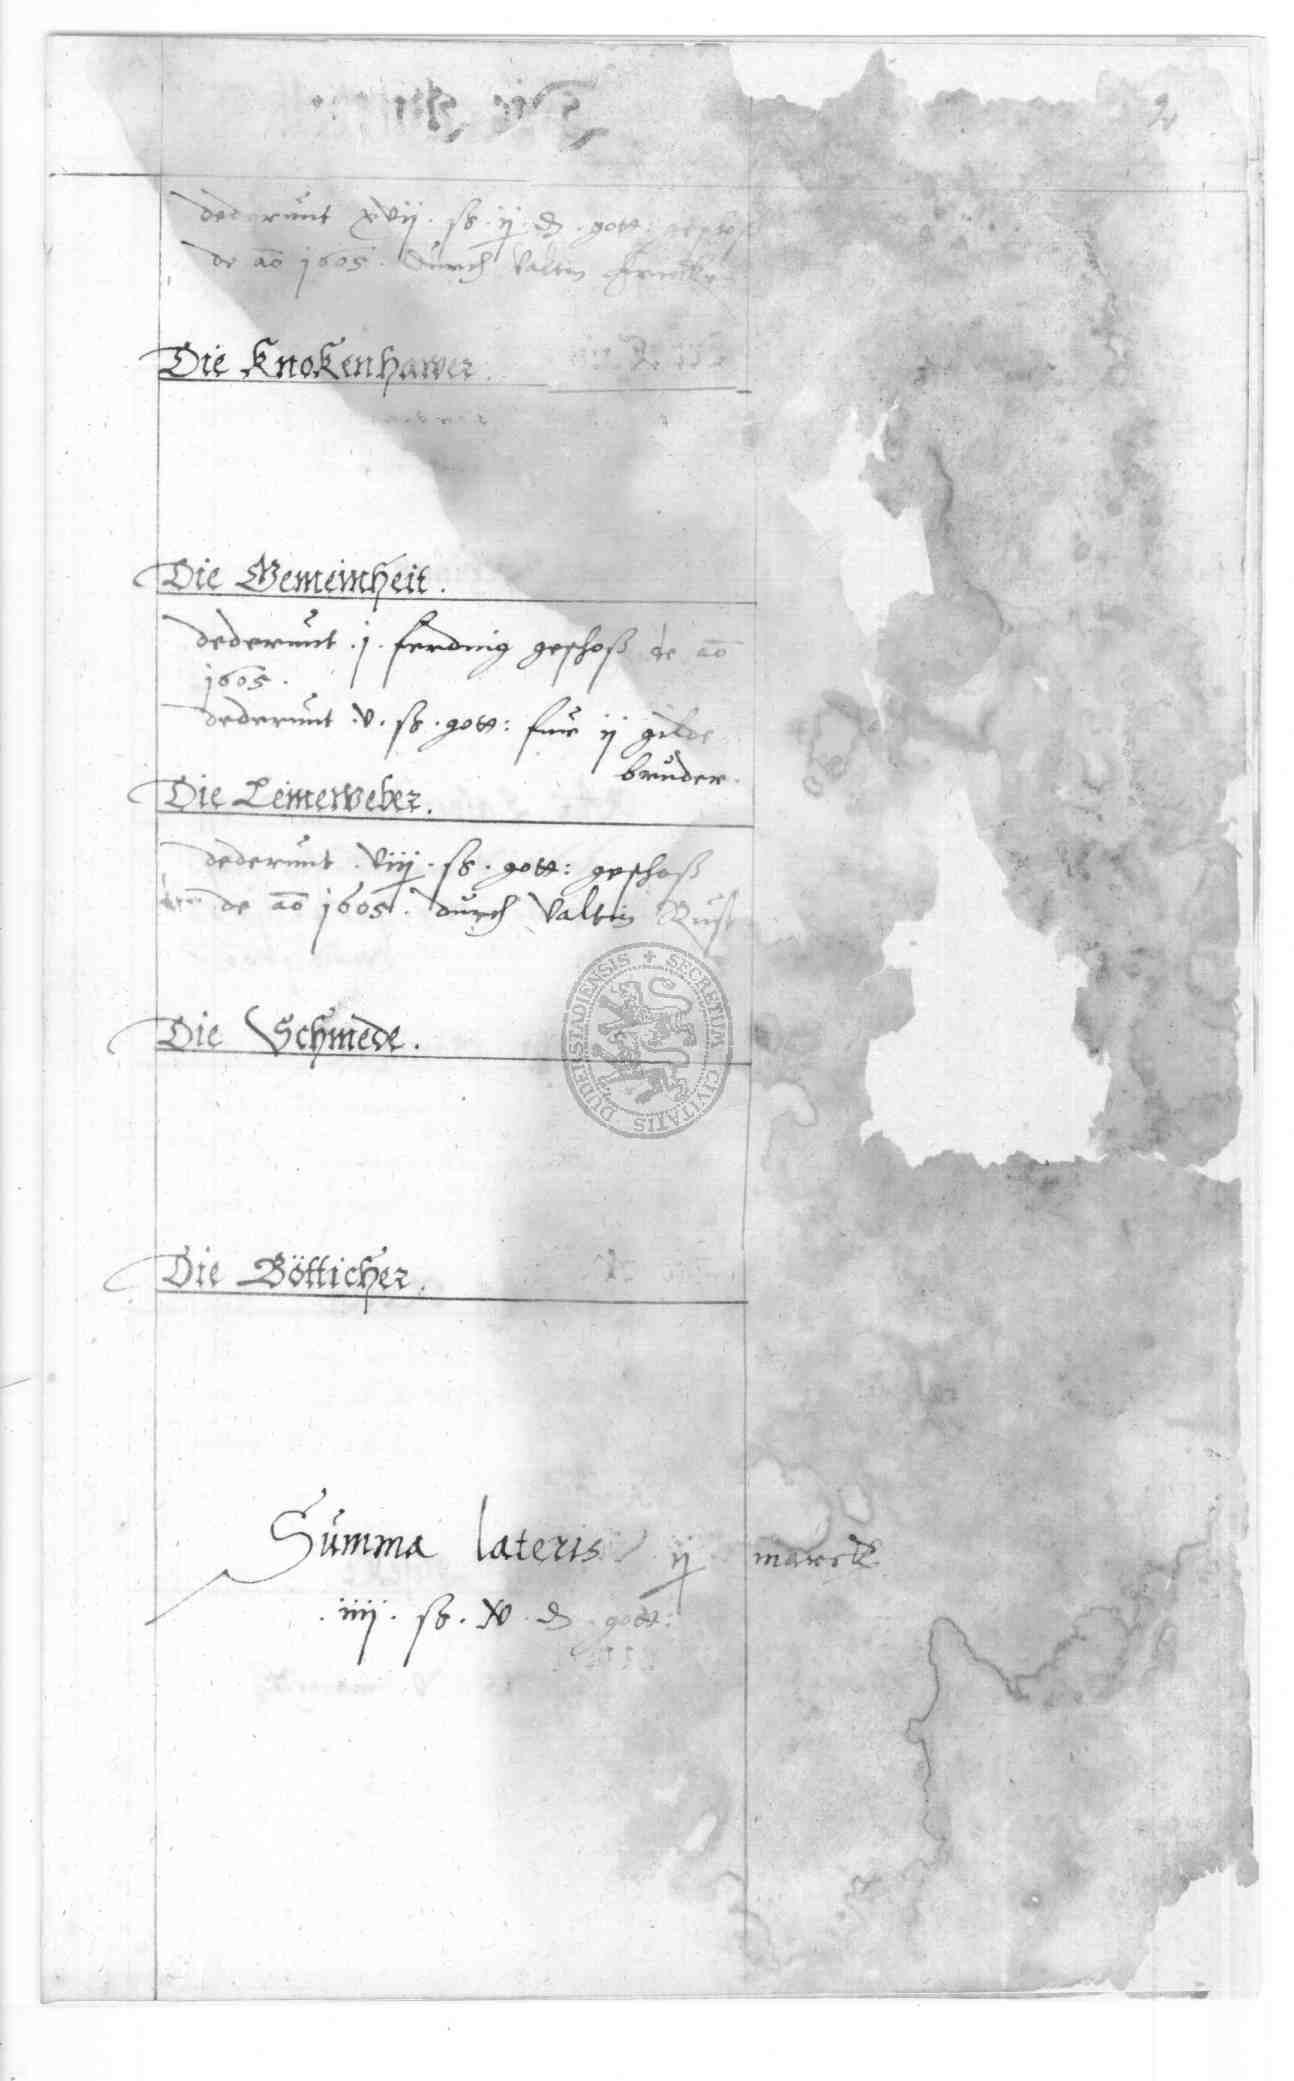 2
dederunt xvij . ß . ij . ₰ . gott: geschoß
de aõ 1605 . durch Valtin
Die Knokenhawer .
Die Gemeinheit .
dederunt . j . ferding geschoß de aõ
1605 .
dederunt . v . ß . gott: fur ij gilde
bruder .
Die Leineweber .
dederunt . viij . ß . gott: geschoß
de aõ 1605 . durch Valtin
Die Schmede .
SECRETUM CIVITATIS DUDERSTADIENSIS
Die Bötticher .
Summa lateris ij marck
. iiij . ß . xv . ₰ . gott: